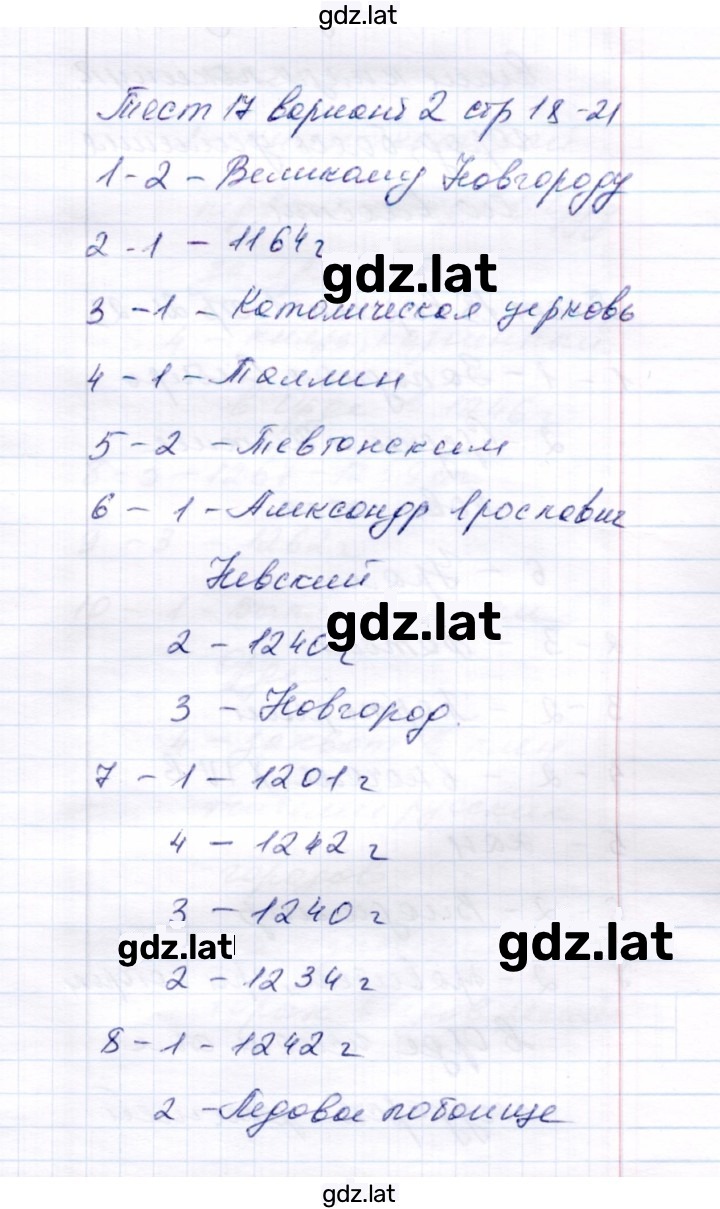 gdz.lat
Тест 17 вариант 2 стр 18-21
1-2 - Великому Новгороду
2-1 - 1164 г
gdz.lat
3-1 - Католическая церковь
4-1 - Таллин
5-2 - Тевтонским
6-1 - Александр Ярославич
Невский
gdz.lat
2 - 1240 г
3 - Новгород.
7-1 - 1201 г
4 - 1242 г
3 - 1240 г
gdz.lat
gdz.lat
2 - 1234 г
8-1 - 1242 г
2 - Ледовое побоище
gdz.lat